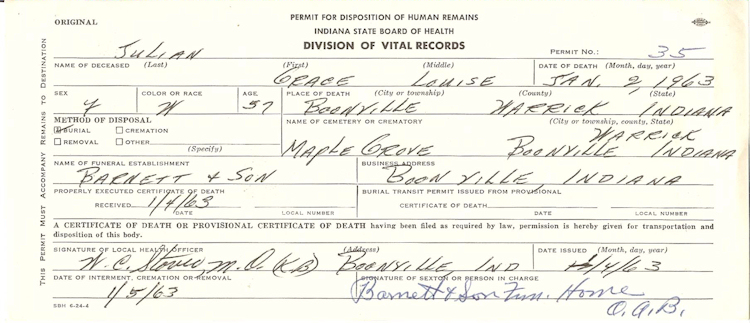 ORIGINAL
PERMIT FOR DISPOSITION OF HUMAN REMAINS
INDIANA STATE BOARD OF HEALTH
DIVISION OF VITAL RECORDS
PERMIT NO.: 35
JULIAN
NAME OF DECEASED (Last) (First) (Middle) DATE OF DEATH (Month, day, year)
GRACE LOUISE JAN. 2, 1963
SEX COLOR OR RACE AGE PLACE OF DEATH (City or township) (County) (State)
F W 57 BOONVILLE WARRICK INDIANA
METHOD OF DISPOSAL NAME OF CEMETERY OR CREMATORY (City or township, county, State)
BURIAL CREMATION WARRICK
REMOVAL OTHER MAPLE GROVE BOONVILLE INDIANA
(Specify)
NAME OF FUNERAL ESTABLISHMENT BUSINESS ADDRESS
BARNETT & SON BOONVILLE, INDIANA
PROPERLY EXECUTED CERTIFICATE OF DEATH BURIAL TRANSIT PERMIT ISSUED FROM PROVISIONAL
RECEIVED 1/4/63 CERTIFICATE OF DEATH
DATE LOCAL NUMBER DATE LOCAL NUMBER
A CERTIFICATE OF DEATH OR PROVISIONAL CERTIFICATE OF DEATH having been filed as required by law, permission is hereby given for transportation and
disposition of this body.
SIGNATURE OF LOCAL HEALTH OFFICER (Address) DATE ISSUED (Month, day, year)
W. C. M.D. (KB) BOONVILLE IND 1/4/63
DATE OF INTERMENT, CREMATION OR REMOVAL SIGNATURE OF SEXTON OR PERSON IN CHARGE
1/5/63 Barnett & Son Fun. Home
O.A.B.
SBH 6-24-4
THIS PERMIT MUST ACCOMPANY REMAINS TO DESTINATION